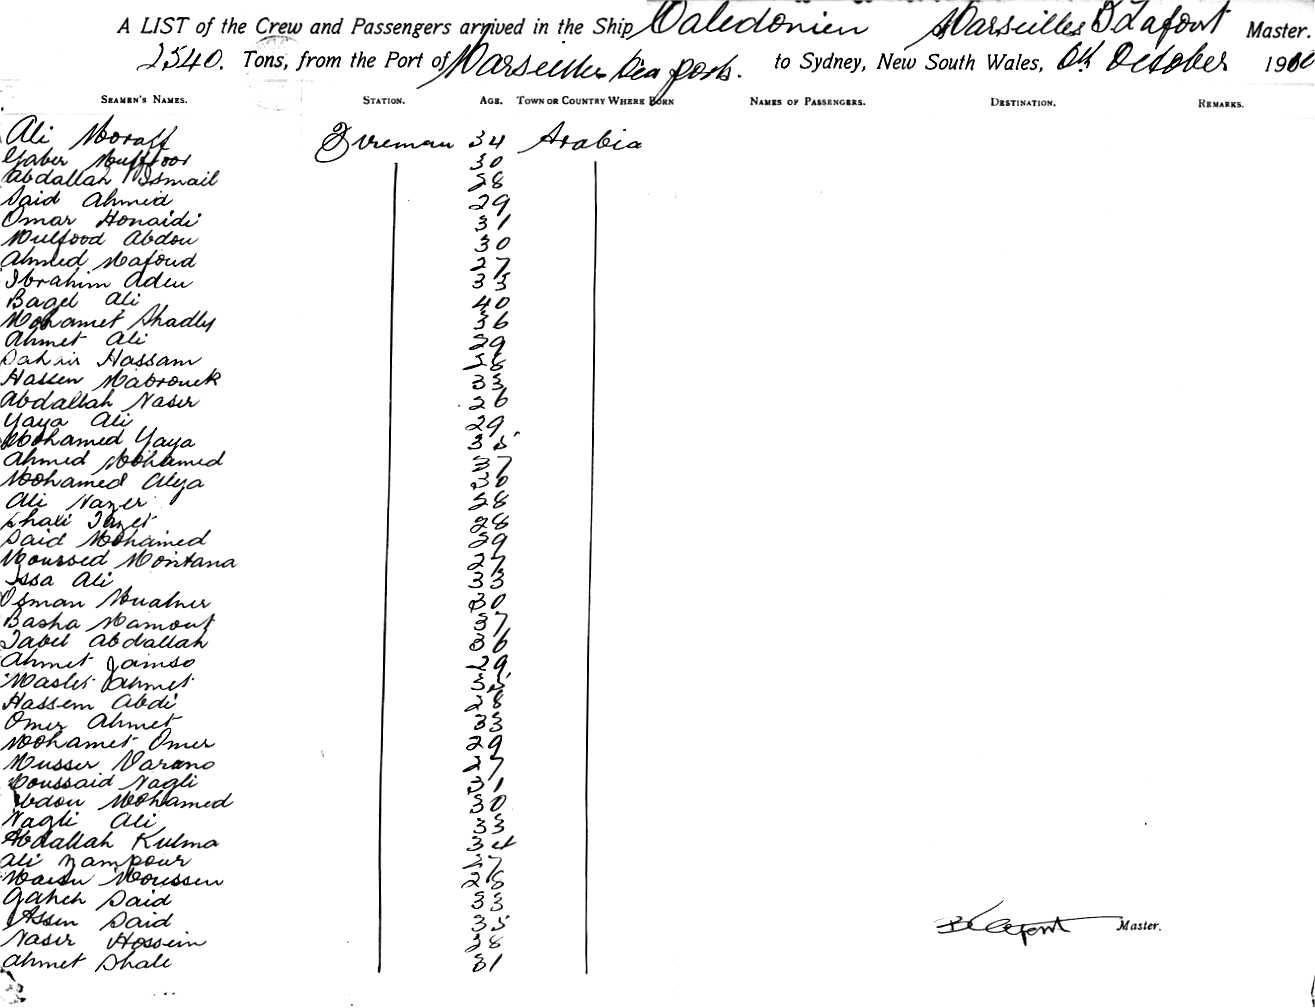 A LIST of the Crew and Passengers arrived in the Ship Caledonien Marseilles B Lafont Master.
2540. Tons, from the Port of Marseilles Sea ports. to Sydney, New South Wales, October 19
SEAMEN'S NAMES. STATION. AGE. TOWN OR COUNTRY WHERE BORN NAMES OF PASSENGERS. DESTINATION. REMARKS.
Ali Fireman 34 Arabia
30
Abdallah Ismail 28
Said Ahmed 29
Omar Honaidi 31
Mulfood Abdou 30
Ahmed Mafoud 27
Ibrahim Aden 33
Bagel Ali 40
Mohamet Shadly 36
Ahmet Ali 29
Hassam 28
Hassen Mabrouck 33
Abdallah Naser 26
Yaya Ali 29
Mohamed Yaya 35
Ahmed Mohamed
Mohamed Alya
Ali Nazer 28
28
Said Mohamed 29
Moussed Montana 27
Issa Ali 33
Osman 30
Basha Mamout 37
Tabel Abdallah 36
Ahmet Jamso 29
Ahmet
Hassem Abdi 28
Omer Ahmet 33
Mohamet Omer 29
Musser Varano 27
Moussaid Nagli 31
Abdou Mohamed 30
Nagli Ali 33
Abdallah Kulma 34
Ali Zampour 27
Moussen 28
Said 33
Assen Said 35
Naser Hossein 28
Ahmet Shale 31
B Lafont Master.